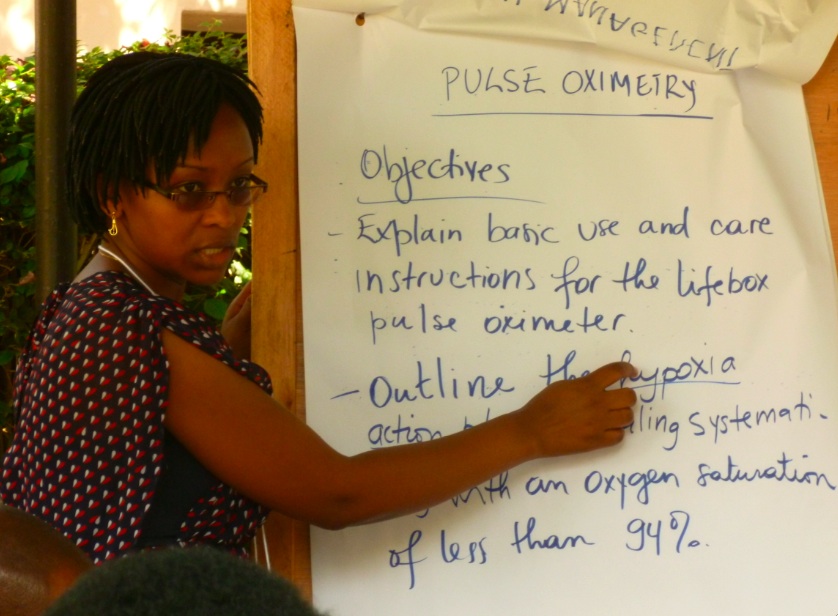 MANAGEMENT
PULSE OXIMETRY
Objectives
- Explain basic use and care
instructions for the lifebox
pulse oximeter.
- Outline the hypoxia
action systemati-
with an oxygen saturation
of less than 94%.